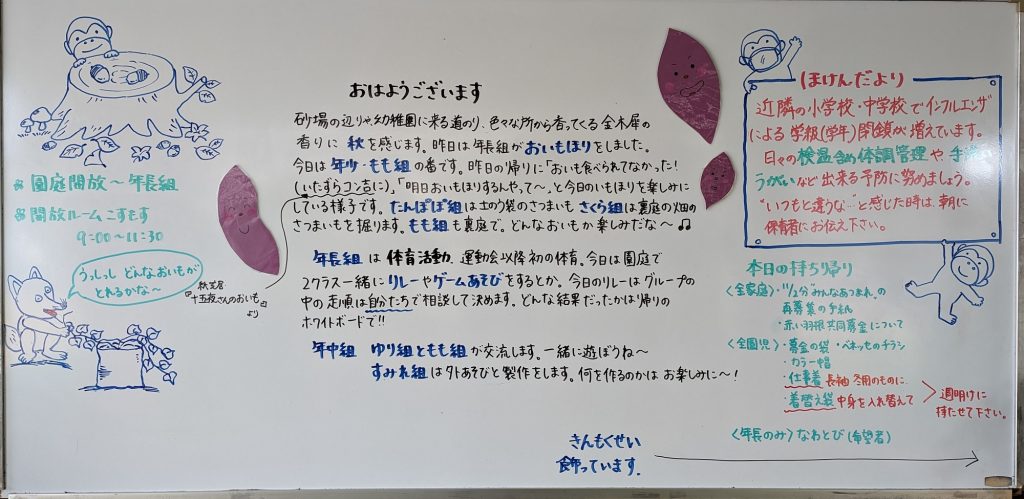 おはようございます
砂場の辺りや幼稚園に来る道のり、色々な所から香ってくる金木犀の
香りに秋を感じます。昨日は年長組がおいもほりをしました。
今日は年少・もも組の番です。昨日の帰りに"おいも食べられてなかった!
(いたずらコン吉に)」「明日おいもほりするんやって〜」と今日のいもほりを楽しみに
している様子です。たんぽぽ組は土のう袋のさつまいも さくら組は裏庭の畑の
さつまいもを掘ります。もも組も裏庭で。どんなおいもか楽しみだな〜♫
年長組は体育活動。運動会以降初の体育。今日は園庭で
2クラス一緒にリレーやゲームあそびをするとか。今日のリレーはグループの
中の走順は自分たちで相談して決めます。どんな結果だったかは帰りの
ホワイトボードで!!
年中組 ゆり組ともも組が交流します。一緒に遊ぼうね〜
すみれ組は外あそびと製作をします。何を作るのかはお楽しみに〜!
きんもくせい
飾っています。
園庭開放〜年長組
開放ルームこすもす
9:00〜11:30
うっしっし どんなおいもが
とれるかな〜
紙芝居
『十五夜さんのおいも』
より
ほけんだより
近隣の小学校・中学校でインフルエンザ
による学級(学年)閉鎖が増えています。
日々の検温含め体調管理や手洗
うがいなど出来る予防に努めましょう。
"いつもと違うな…"と感じた時は、朝に
保育者にお伝え下さい。
本日の持ち帰り
〈全家庭〉・11/2分"みんなあつまれ"の
再募集の手紙
・赤い羽根共同募金について
〈全園児〉・募金の袋 ・ベネッセのチラシ
・カラー帽
・仕事着 長袖 冬用のものに
・着替え袋 中身を入れ替えて
週明けに
持たせて下さい。
〈年長のみ〉なわとび(希望者)